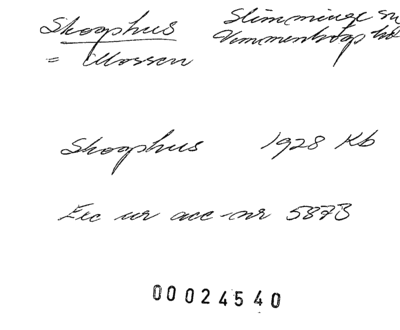 Skoghus Slimminge sn
= Mossen Vemmenhögs hd
Skoghus 1928 Kb
Exc ur acc-nr 5873
00024540